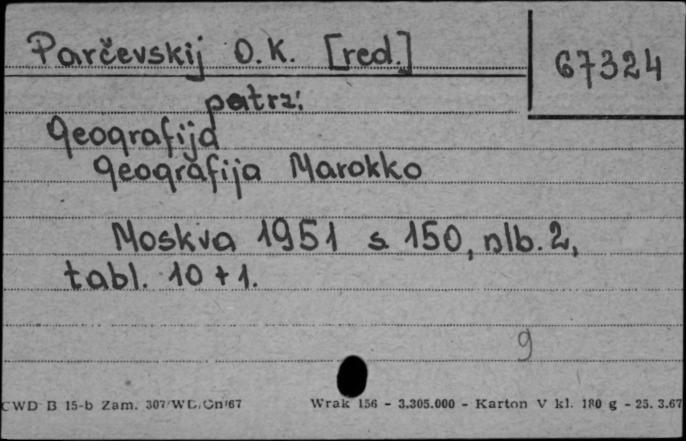 Parčevskij O.K. [red.]
67324
patrz:
Geografija
Geografija Marokko
Moskva 1951 s. 150, nlb. 2,
tabl. 10 + 1.
9
CWD B 15-b Zam. 307/WD/Gn/67 Wrak 156 - 3.305.000 - Karton V kl. 180 g - 25. 3.67